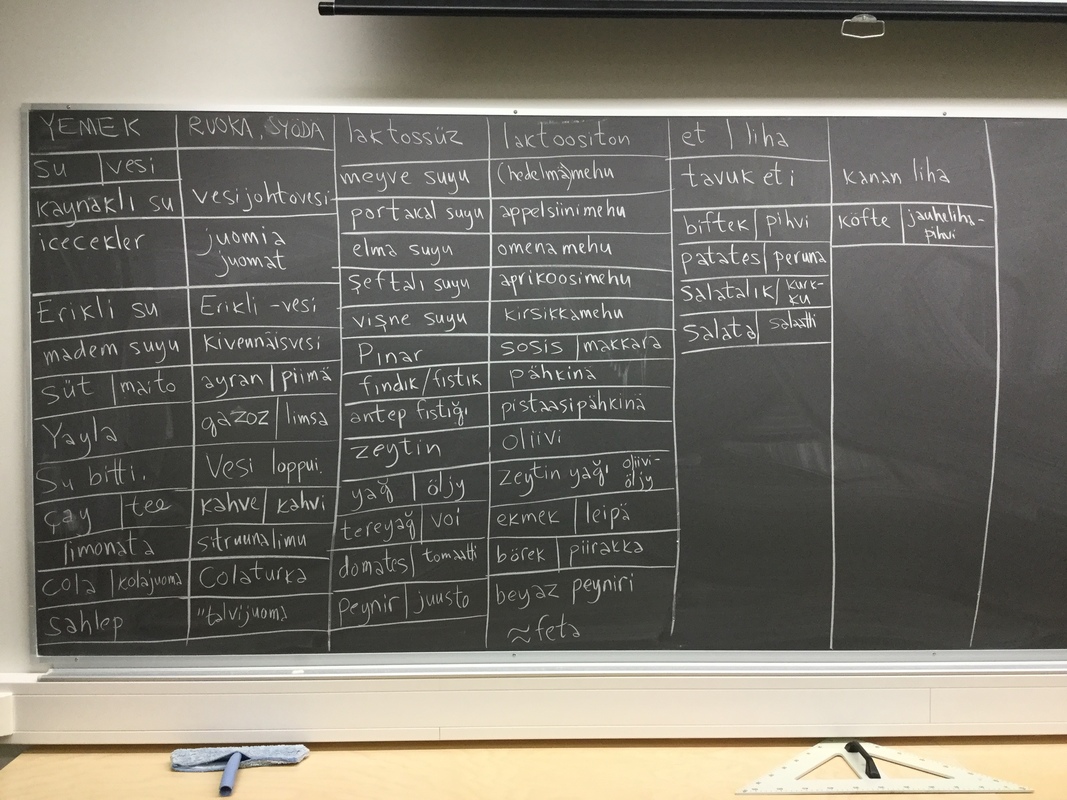 YEMEK RUOKA, SYÖDÄ
su | vesi
kaynaklı su vesijohtovesi
icecekler juomia
juomat
Erikli su Erikli -vesi
madem suyu kivennäisvesi
süt | maito ayran | piimä
Yayla gazoz | limsa
Su bitti. Vesi loppui.
çay | tee kahve | kahvi
limonata sitruunalimu
cola | kolajuoma Colaturka
sahlep "talvijuoma
laktossüz laktoositon
meyve suyu (hedelmä)mehu
portakal suyu appelsiinimehu
elma suyu omenamehu
şeftalı suyu aprikoosimehu
vişne suyu kirsikkamehu
Pınar sosis | makkara
fındık/fıstık pähkinä
antep fıstığı pistaasipähkinä
zeytin oliivi
yağ | öljy zeytin yağı oliivi-
öljy
tereyağ | voi ekmek | leipä
domates | tomaatti börek | piirakka
peynir | juusto beyaz peyniri
≈ feta
et | liha
tavuk eti kanan liha
biftek | pihvi köfte | jauheliha-
pihvi
patates | peruna
salatalık / kurk-
ku
salata | salaatti